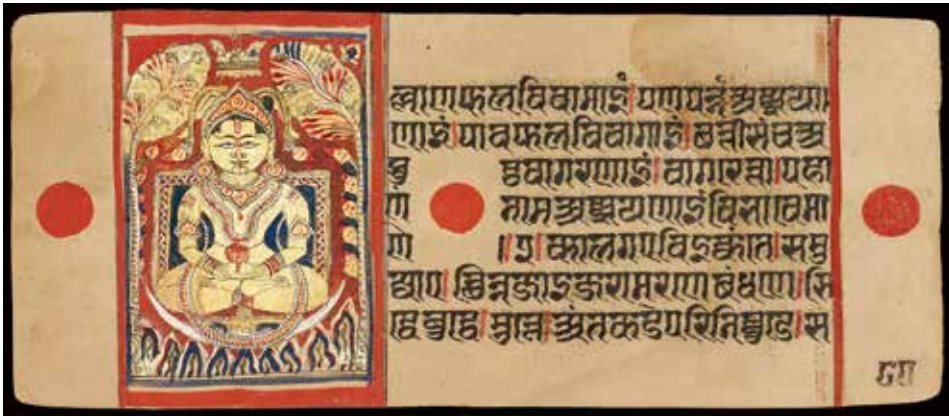 ल्लाणफलविवागाइं।पणपन्नंअज्झयण
णाइं।पावफलविवागाइं।छत्तीसंचअ
पु ट्ठवागरणाइं।वागरित्ता।पहा
ण नामअज्झयणाइंविभावेमा
णे ॥२।कालगएविइक्कंते।समु
ज्जाए।छिन्नजाइजरामरणबंधणे।सि
द्धेबुद्धे।मुत्ते।अंतकडेपरिनिव्वुडे।स